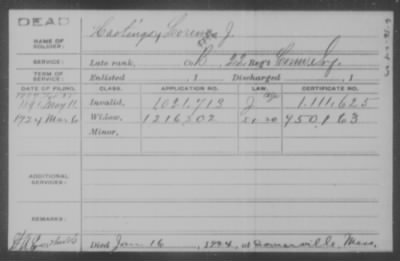 DEAD
NAME OF SOLDIER:
Hastings, Lorenzo J.
SERVICE:
Late rank, Co B, 22 Reg't Conn. Inf.
TERM OF SERVICE:
Enlisted , 1 Discharged , 1
DATE OF FILING. CLASS. APPLICATION NO. LAW. CERTIFICATE NO.
1891 May 11 Invalid, 1021,713 J 1.111,625
1924 Mar 6 Widow, 1216,202 950,163
Minor,
ADDITIONAL SERVICES:
REMARKS:
Died Jan 16, 1924, at Somerville, Mass.